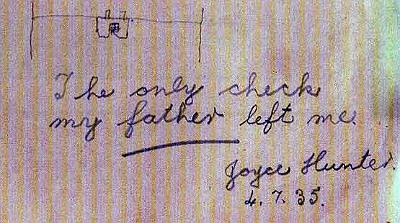 The only check
my father left me.
Joyce Hunter.
4. 7. 35.